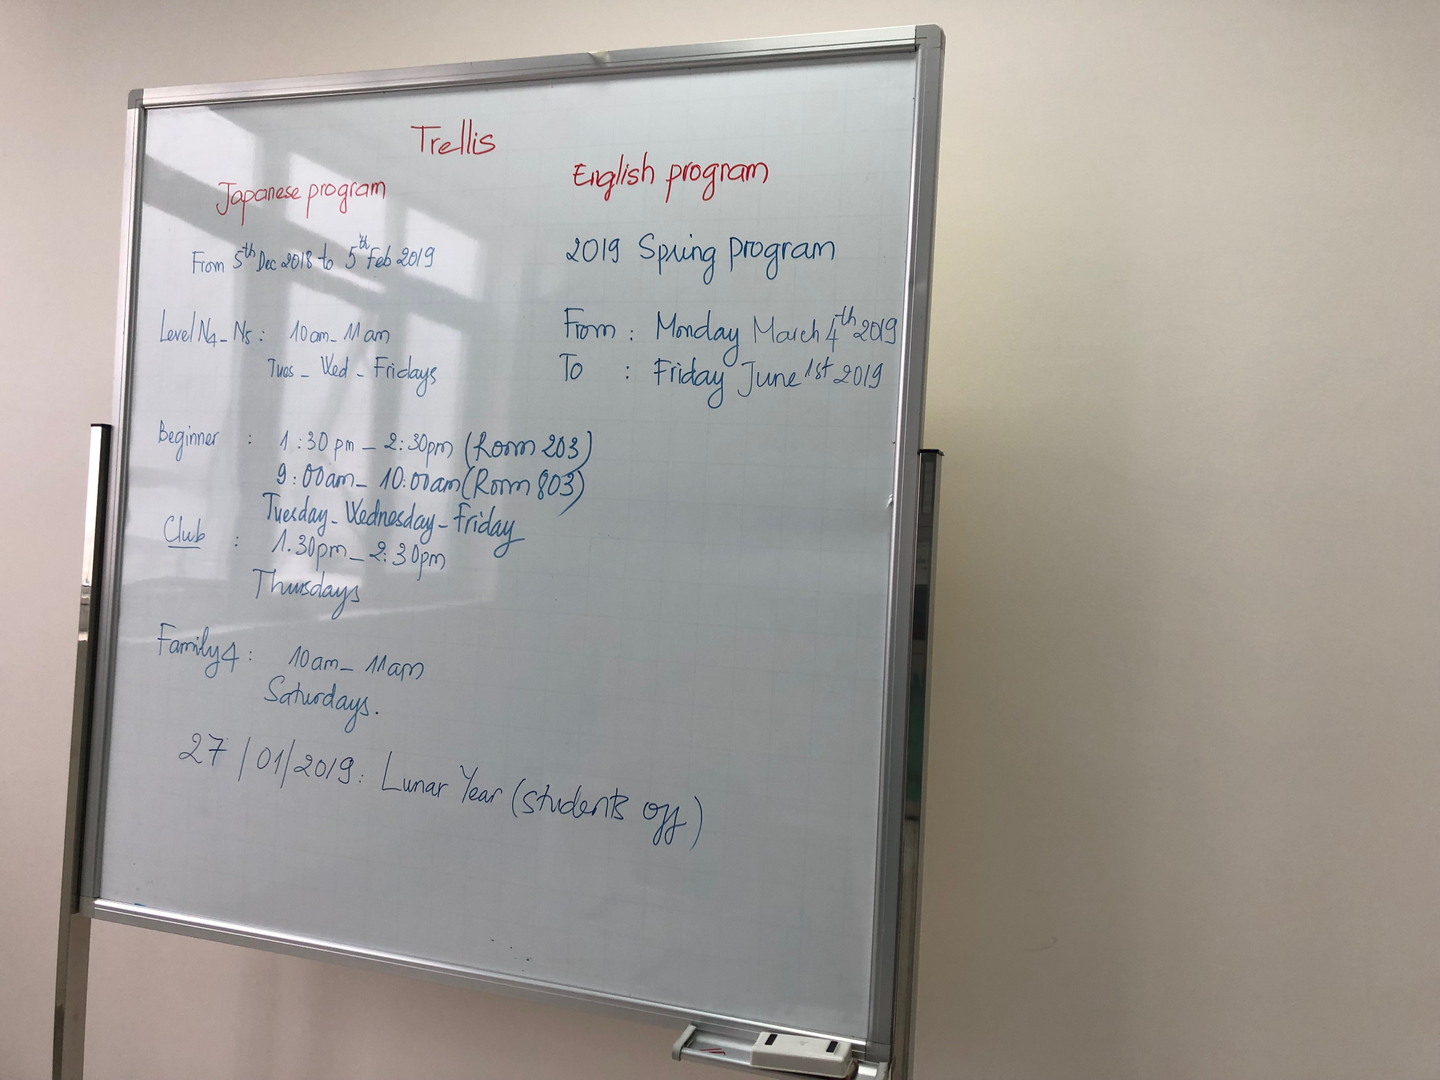 Trellis
Japanese program
From 5th Dec 2018 to 5th Feb 2019
Level N4_N5 : 10am_11am
Tues_Wed_Fridays
Beginner : 1:30pm_2:30pm (Room 203)
9:00am_10:00am (Room 803)
Tuesday_Wednesday_Friday
Club : 1.30pm_2:30pm
Thursdays
Family 4 : 10am_11am
Saturdays.
27/01/2019: Lunar Year (students off)
English program
2019 Spring program
From : Monday March 4th 2019
To : Friday June 1st 2019